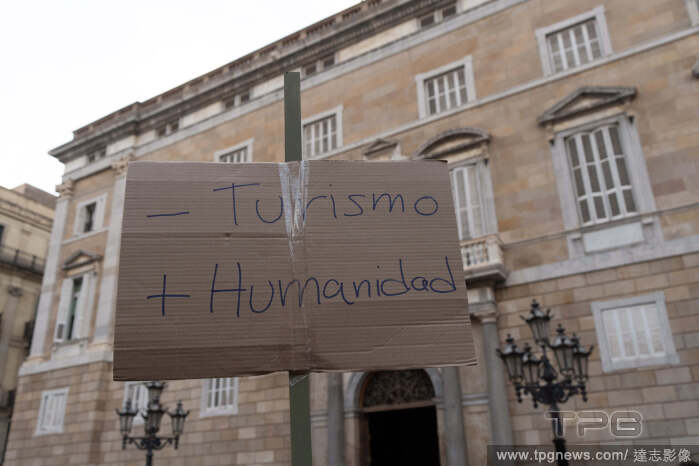 − Turismo
+ Humanidad
TPG
www.tpgnews.com/ 達志影像